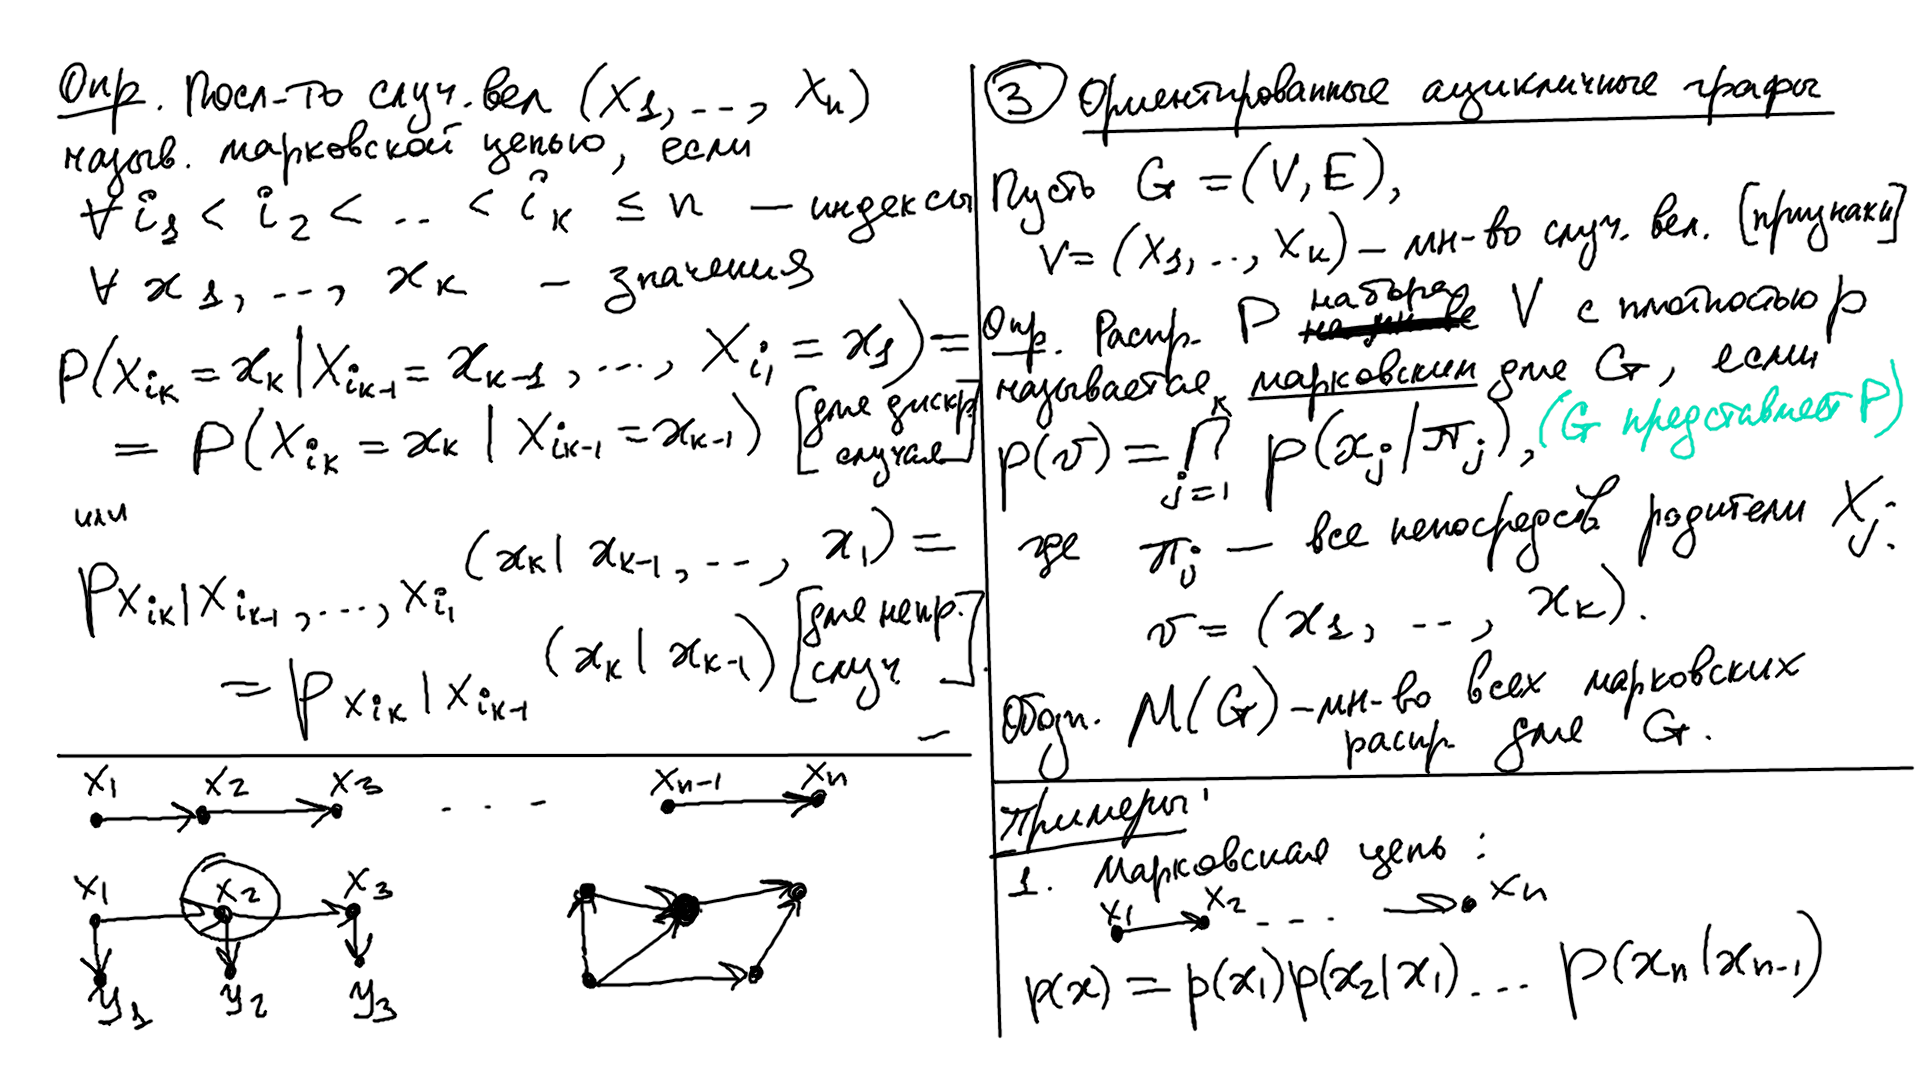 Опр. Посл-ть случ. вел (X₁, ..., Xₙ)
назыв. марковской цепью, если
∀ i₁ < i₂ < .. < iₖ ≤ n — индексы
∀ x₁, ..., xₖ — значения
P(X_{iₖ} = xₖ | X_{iₖ₋₁} = xₖ₋₁, ..., X_{i₁} = x₁) =
= P(X_{iₖ} = xₖ | X_{iₖ₋₁} = xₖ₋₁) [для дискр.
случая]
или
p_{X_{iₖ} | X_{iₖ₋₁}, ..., X_{i₁}} (xₖ | xₖ₋₁, ..., x₁) =
= p_{X_{iₖ} | X_{iₖ₋₁}} (xₖ | xₖ₋₁) [для непр.
случ].
X₁ X₂ X₃ . . . Xₙ₋₁ Xₙ
X₁ X₂ X₃
y₁ y₂ y₃
③ Ориентированные ацикличные графы
Пусть G = (V, E),
V = (X₁, .., Xₖ) – мн-во случ. вел. [признаки]
Опр. Распр. P набора V с плотностью p
называется марковским для G, если
p(v) = ∏_{j=1}^{k} p(x_j | π_j), (G представляет P)
где π_j — все непосредств родители X_j.
v = (x₁, .., xₖ).
Обозн. M(G) – мн-во всех марковских
распр для G.
Примеры:
1. Марковская цепь:
X₁ X₂ . . . Xₙ
p(x) = p(x₁) p(x₂|x₁) ... p(xₙ|xₙ₋₁)